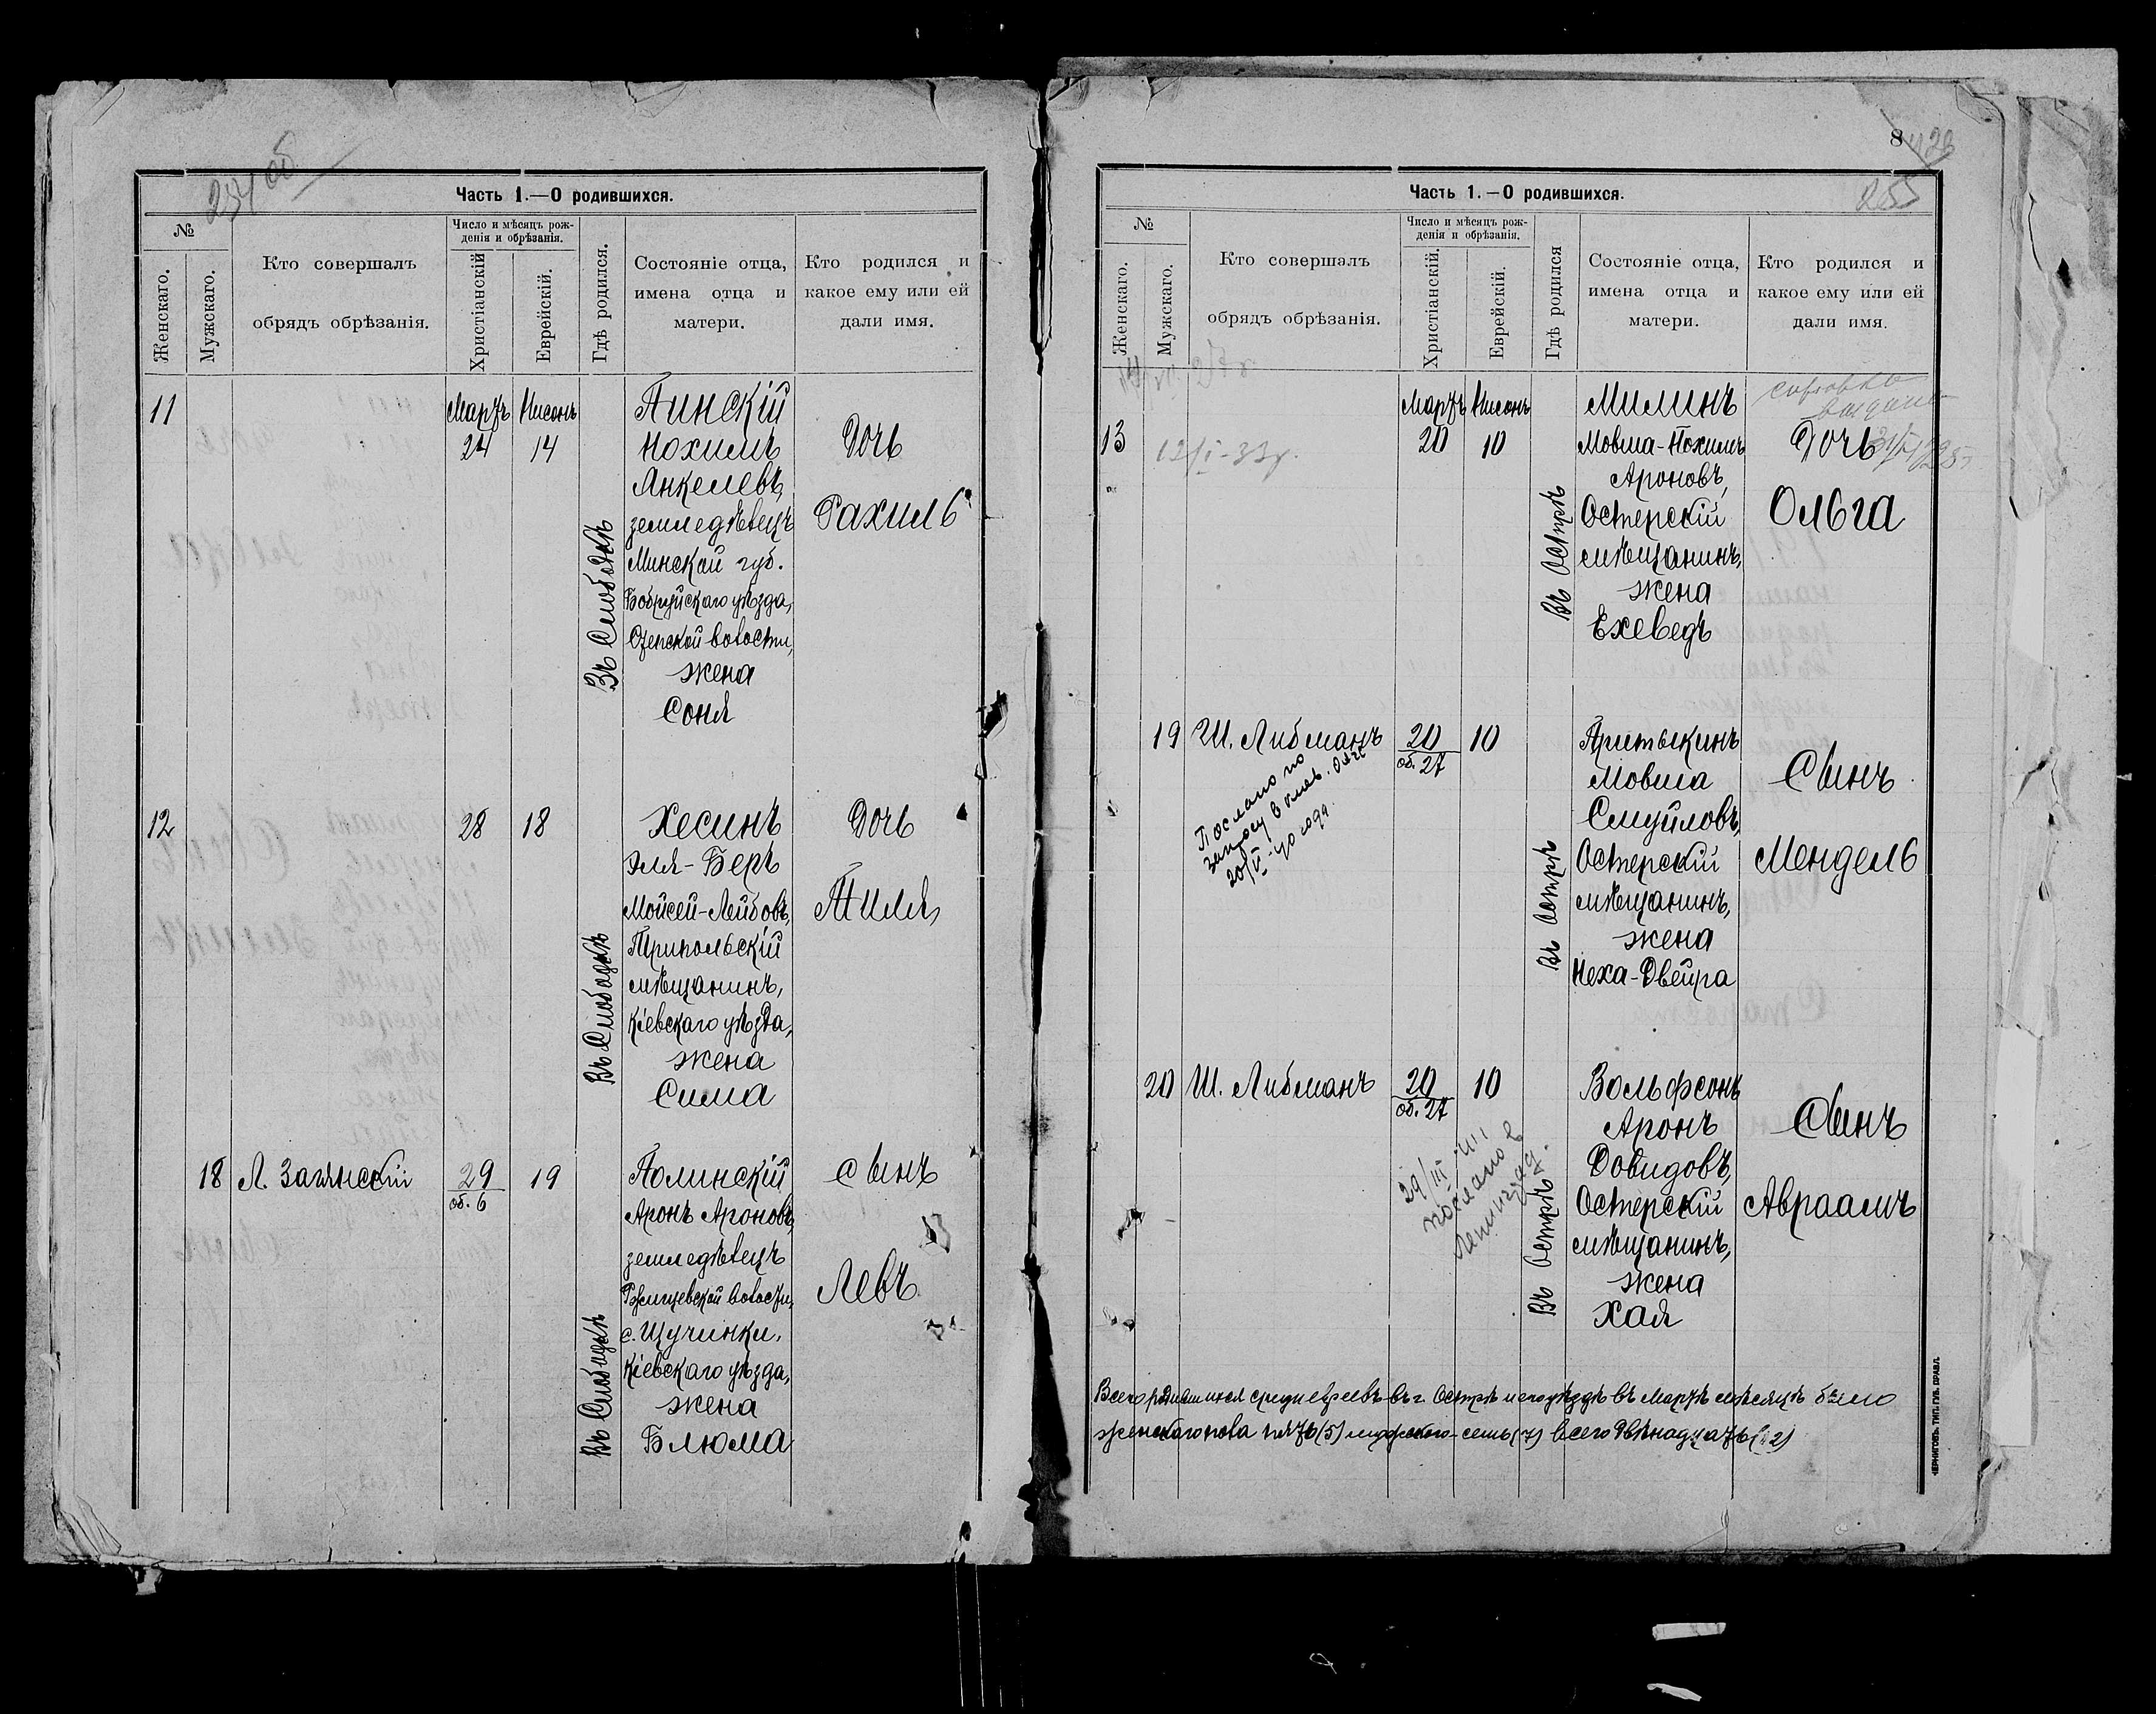 234 об
Часть 1.—О родившихся.
№
Женскаго.
Мужскаго.
Кто совершалъ
обрядъ обрѣзанія.
Число и мѣсяцъ рож-
денія и обрѣзанія.
Христіанскій
Еврейскій.
Гдѣ родился.
Состояніе отца,
имена отца и
матери.
Кто родился и
какое ему или ей
дали имя.
11
Мартъ Нисонъ
24 14
Въ Слободкѣ
Пинскій
Нохимъ
Янкелевъ,
земледѣлецъ
Минской губ.
Бобруйскаго уѣзда,
волости,
жена
Соня
Дочь
Рахиль
12
28 18
Въ Слободкѣ
Хесинъ
Эля-Беръ
Мойсей-Лейбовъ,
Трипольскій
мѣщанинъ,
Кіевскаго уѣзда,
жена
Сима
Дочь
Тиля
18 Л. Заянскій
29
об. 6
19
Въ Слободкѣ
Полинскій
Аронъ Ароновъ,
земледѣлецъ
Ржищевской волости,
с. Щучинки,
Кіевскаго уѣзда,
жена
Блюма
Сынъ
Левъ
8
255
Часть 1.—О родившихся.
№
Женскаго.
Мужскаго.
Кто совершалъ
обрядъ обрѣзанія.
Число и мѣсяцъ рож-
денія и обрѣзанія.
Христіанскій.
Еврейскій.
Гдѣ родился
Состояніе отца,
имена отца и
матери.
Кто родился и
какое ему или ей
дали имя.
13
12/I-33г.
Мартъ Нисонъ
20 10
Въ Острѣ
Милинъ
Мовша-Нохимъ
Ароновъ,
Остерскій
мѣщанинъ,
жена
Ехеведъ
справка
выдана
Дочь
Ольга
19 Ш. Либманъ
20
об. 27
10
Послано по
запросу в
20/V-40 года.
Въ Острѣ
Притыкинъ
Мовша
Смуйловъ,
Остерскій
мѣщанинъ,
жена
Неха-Двейра
Сынъ
Мендель
20 Ш. Либманъ
20
об. 27
10
29/III 41г
послано в
Ленинград.
Въ Острѣ
Вольфсонъ
Аронъ
Довидовъ,
Остерскій
мѣщанинъ,
жена
Хая
Сынъ
Авраамъ
Всего родившихся среди евреевъ въ г. Острѣ и его уѣздѣ въ Мартѣ мѣсяцѣ было
женскаго пола пять (5) мужского-семь (7) всего двѣнадцать (12)
ЧЕРНИГОВЪ. ТИП. ГУБ. ПРАВЛ.